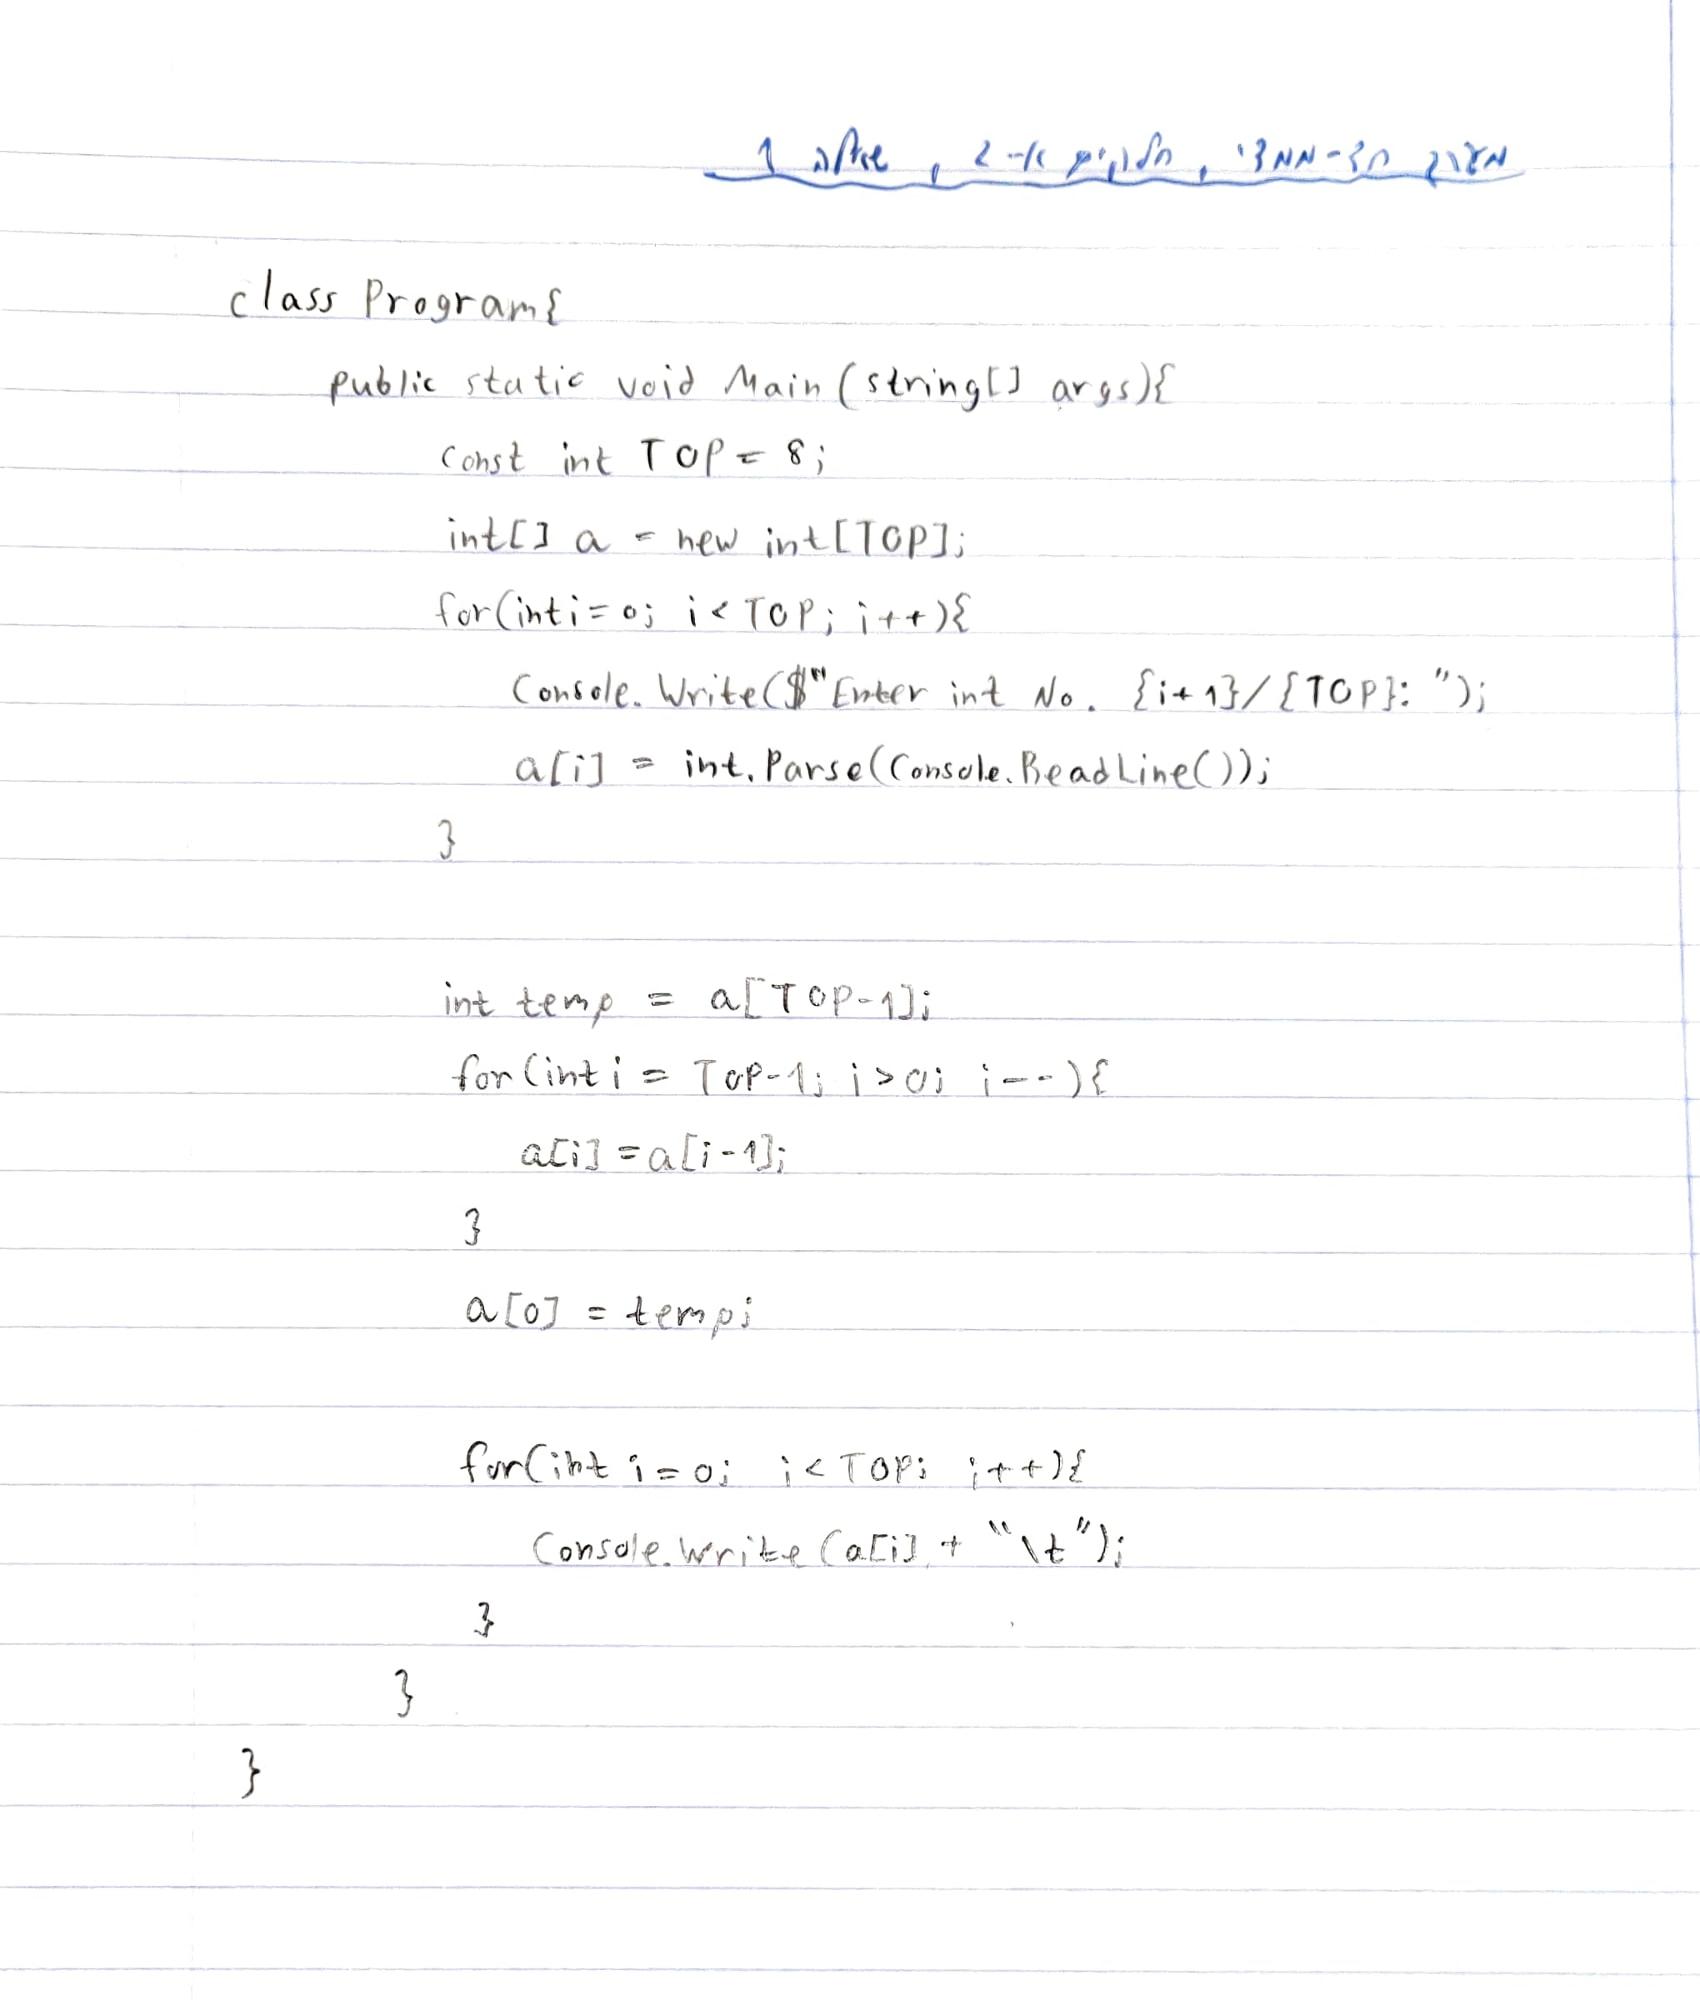 מערך חד-ממדי, תלמיד א-2, שאלה 1
class Program{
public static void Main(string[] args){
const int TOP = 8;
int[] a = new int[TOP];
for(int i=0; i < TOP; i++){
Console.Write($"Enter int No. {i+1}/{TOP}: ");
a[i] = int.Parse(Console.ReadLine());
}
int temp = a[TOP-1];
for(int i = TOP-1; i>0; i--){
a[i] = a[i-1];
}
a[0] = temp;
for(int i=0; i < TOP; i++){
Console.Write(a[i] + "\t");
}
}
}